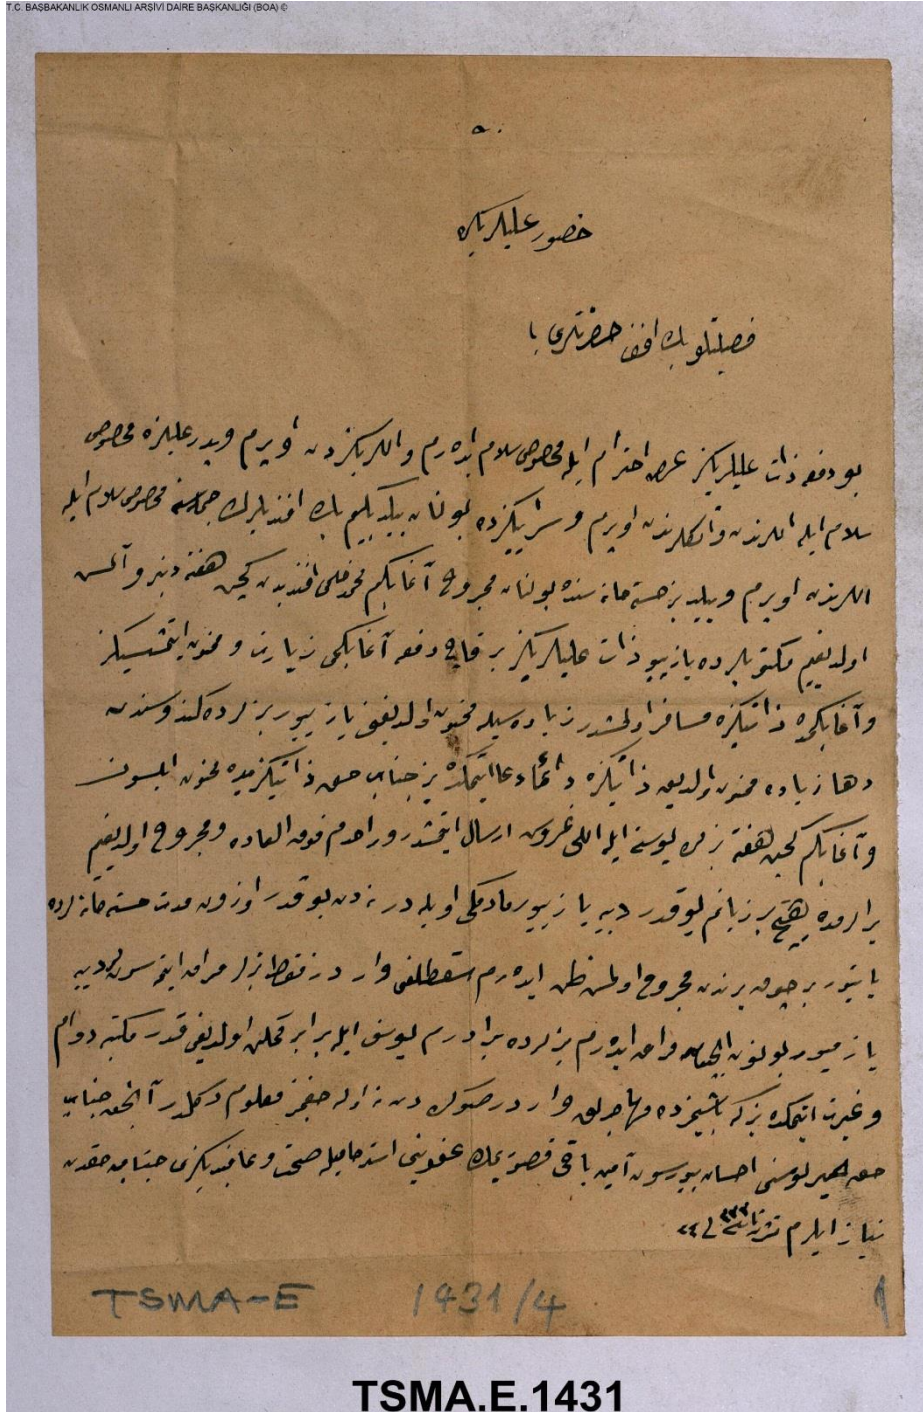 T.C. BAŞBAKANLIK OSMANLI ARŞİVİ DAİRE BAŞKANLIĞI (BOA) ©
حضور عليلرينه
فضيلتلو بك افندی حضرتلری
بو دفعه ذات عليلريكز عرض احترام ايله مخصوص سلام ايده رم و اللريكزدن اوپرم و پدر عليلره مخصوص
سلام ايله اللرندن و اتكلرندن اوپرم و سرايكزده بولنان بك افنديلرك جمله سنه مخصوص سلام ايله
اللرندن اوپرم و خسته خانه سنده بولنان مجروح آغابكم محمد حلمی افنديدن كچن هفته و آلمش
اولديغم مكتوبلرده يازييور ذات عليلريكز بر قاچ دفعه آغابكمی زيارت و ممنون ايتمشسيكز
و آغابكمده ذاتيكزه مسافر اولمشدر زياده سيله ممنون اولديغی يازييور بزلرده كندوسندن
دها زياده ممنون اولديق ذاتيكزه دائما دعا ايتمكده يز جناب حق ذاتيكزيده ممنون ايلسون
و آغابكم كچن هفته بزه پوسته ايله اللی غروش ارسال ايتمشدر و راحدم فوق العاده و مجروح اولديغم
يرلرمده هيچ بر زيانم يوقدر دييه يازييور مادمكی اويله در نه دن بو قدر اوزون مدت خسته خانه لرده
ياتيور بر چوق يرندن مجروح اولمش ظن ايده رم سقطلغی وار در فقط بزلر مراق ايتمه سونلر دييه
يازميور بونون ايچون مراق ايده رم بزلرده برادرم يوسف ايله برابر ممكن اولديغی قدر مكتبه دوام
و غيرت ايتمكده يز كه باشيمزده مهاجرلق وار در صوك دن نه اوله جغمز معلوم دكلدر آنجق جناب
حق خيرلوسنی احسان بيورسون آمين باقی قصوريمك عفوينی استرحامله صحت و عافيتيكزی جناب حقدن
نياز ايلرم
TSMA-E 1431/4
TSMA.E.1431